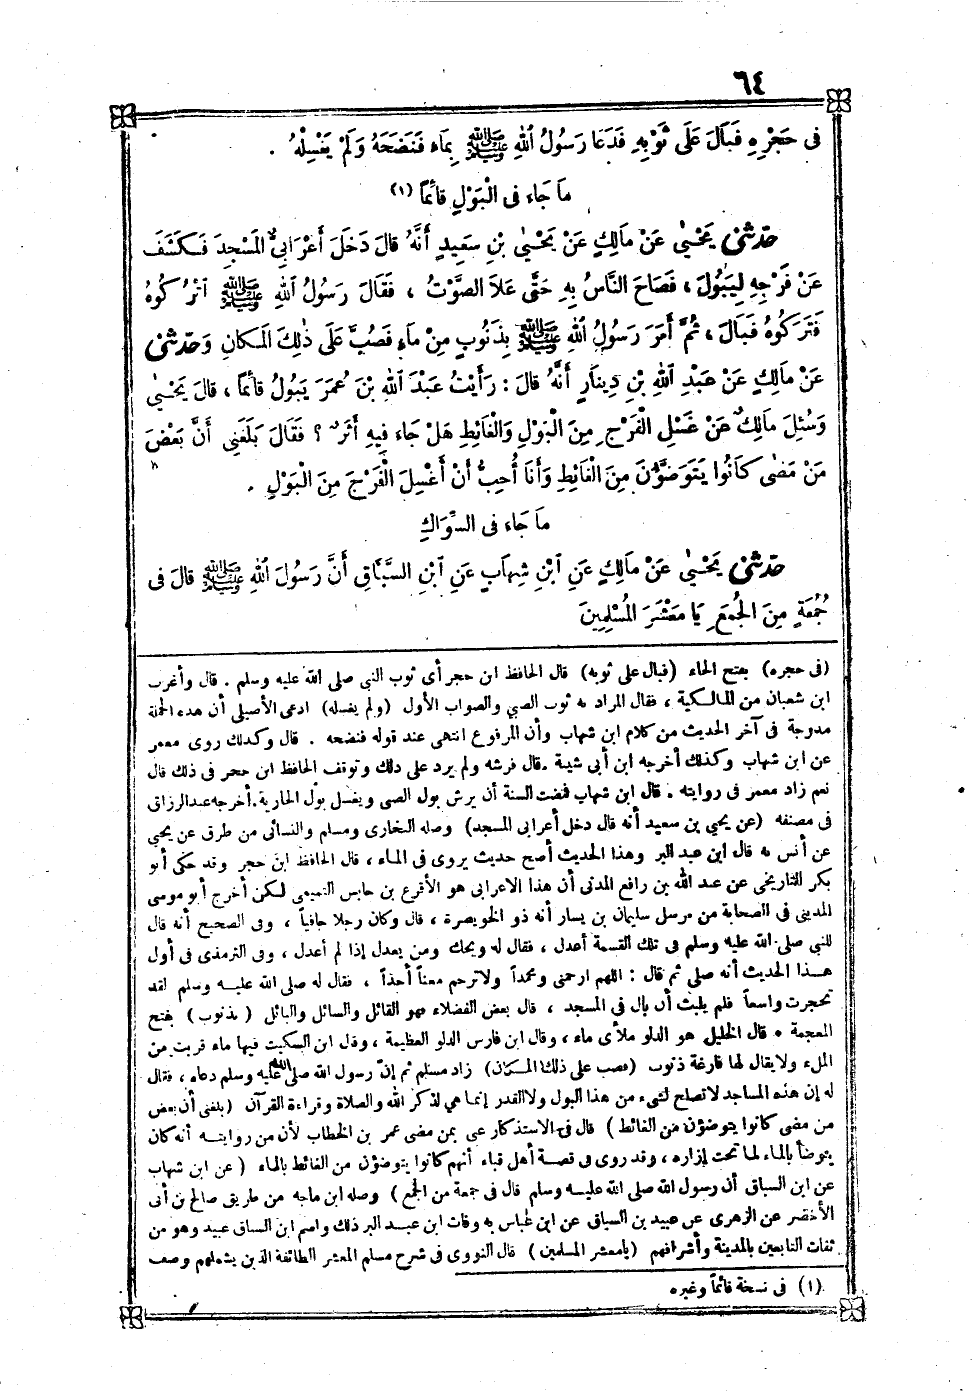 ٦٤
فى حَجْرِهِ فَبَالَ عَلَى ثَوْبِهِ فَدَعَا رَسُولُ اللهِ ﷺ بِمَاءٍ فَنَضَحَهُ وَلَمْ يَغْسِلْهُ .
مَا جَاءَ فى الْبَوْلِ قَائِمًا (١)
حَدَّثَنِى يَحْيَى عَنْ مَالِكٍ عَنْ يَحْيَى بْنِ سَعِيدٍ أَنَّهُ قَالَ دَخَلَ أَعْرَابِىٌّ الْمَسْجِدَ فَكَشَفَ
عَنْ فَرْجِهِ لِيَبُولَ ، فَصَاحَ النَّاسُ بِهِ حَتَّى عَلاَ الصَّوْتُ ، فَقَالَ رَسُولُ اللهِ ﷺ اتْرُكُوهُ
فَتَرَكُوهُ فَبَالَ ، ثُمَّ أَمَرَ رَسُولُ اللهِ ﷺ بِذَنُوبٍ مِنْ مَاءٍ فَصُبَّ عَلَى ذٰلِكَ الْمَكَانِ وَحَدَّثَنِى
عَنْ مَالِكٍ عَنْ عَبْدِ اللهِ بْنِ دِينَارٍ أَنَّهُ قَالَ : رَأَيْتُ عَبْدَ اللهِ بْنَ عُمَرَ يَبُولُ قَائِمًا ، قَالَ يَحْيَى
وَسُئِلَ مَالِكٌ عَنْ غَسْلِ الْفَرْجِ مِنَ الْبَوْلِ وَالْغَائِطِ هَلْ جَاءَ فِيهِ أَثَرٌ ؟ فَقَالَ بَلَغَنِى أَنَّ بَعْضَ
مَنْ مَضَى كَانُوا يَتَوَضَّؤُنَ مِنَ الْغَائِطِ وَأَنَا أُحِبُّ أَنْ أَغْسِلَ الْفَرْجَ مِنَ الْبَوْلِ .
مَا جَاءَ فى السِّوَاكِ
حَدَّثَنِى يَحْيَى عَنْ مَالِكٍ عَنِ ابْنِ شِهَابٍ عَنِ ابْنِ السَّبَّاقِ أَنَّ رَسُولَ اللهِ ﷺ قَالَ فى
جُمُعَةٍ مِنَ الْجُمَعِ يَا مَعْشَرَ الْمُسْلِمِينَ
(فى حجره) بفتح الحاء (فبال على ثوبه) قال الحافظ ابن حجر أى ثوب النبى صلى الله عليه وسلم . قال وأغرب
ابن شعبان من المالكية ، فقال المراد به ثوب الصبي والصواب الأول (ولم يغسله) ادعى الأصيلى أن هذه الجملة
مدرجة فى آخر الحديث من كلام ابن شهاب وأن المرفوع انتهى عند قوله فنضحه . قال وكذلك روى معمر
عن ابن شهاب وكذلك أخرجه ابن أبى شيبة . قال فرشه ولم يرد على ذلك وتوقف الحافظ ابن حجر فى ذلك قال
نعم زاد معمر فى روايته . قال ابن شهاب فمضت السنة أن يرش بول الصبى ويغسل بول الجارية . أخرجه عبدالرزاق
فى مصنفه (عن يحيى بن سعيد أنه قال دخل أعرابى المسجد) وصله البخارى ومسلم والنسائى من طرق عن يحيى
عن أنس به قال ابن عبد البر وهذا الحديث أصح حديث يروى فى الماء ، قال الحافظ ابن حجر وقد حكى أبو
بكر التاريخى عن عبد الله بن رافع المدنى أن هذا الاعرابى هو الأقرع بن حابس التميمى لكن أخرج أبو موسى
المدينى فى الصحابة من مرسل سليمان بن يسار أنه ذو الخويصرة ، قال وكان رجلا جافياً ، وفى الصحيح أنه قال
للنبى صلى الله عليه وسلم فى تلك القسمة أعدل ، فقال له ويحك ومن يعدل إذا لم أعدل ، وفى الترمذى فى أول
هذا الحديث أنه صلى ثم قال : اللهم ارحمنى ومحمداً ولا ترحم معنا أحداً ، فقال له صلى الله عليه وسلم لقد
تحجرت واسعاً فلم يلبث أن بال فى المسجد ، قال بعض الفضلاء فهو القائل والسائل والبائل (بذنوب) بفتح
المعجمة . قال الخليل هو الدلو ملأى ماء ، وقال ابن فارس الدلو العظيمة ، وقال ابن السكيت فيها ماء قريب من
الملء ولا يقال لها فارغة ذنوب (فصب على ذلك المكان) زاد مسلم ثم إن رسول الله صلى الله عليه وسلم دعاه ، فقال
له إن هذه المساجد لا تصلح لشىء من هذا البول ولا القدر إنما هى لذكر الله والصلاة وقراءة القرآن (بلغنى أن بعض
من مضى كانوا يتوضؤن من الغائط) قال فى الاستذكار عنى بمن مضى عمر بن الخطاب لأن من روايته أنه كان
يتوضأ بالماء لما تحت إزاره ، وقد روى فى قصة أهل قباء أنهم كانوا يتوضؤن من الغائط بالماء (عن ابن شهاب
عن ابن السباق أن رسول الله صلى الله عليه وسلم قال فى جمعة من الجمع) وصله ابن ماجه من طريق صالح بن أبى
الأخضر عن الزهرى عن عبيد بن السباق عن ابن عباس به وفات ابن عبد البر ذلك واسم ابن السباق عبيد وهو من
ثقات التابعين بالمدينة وأشرافهم (يامعشر المسلمين) قال النووى فى شرح مسلم المعشر الطائفة الذين يشملهم وصف
(١) فى نسخة قائماً وغيره